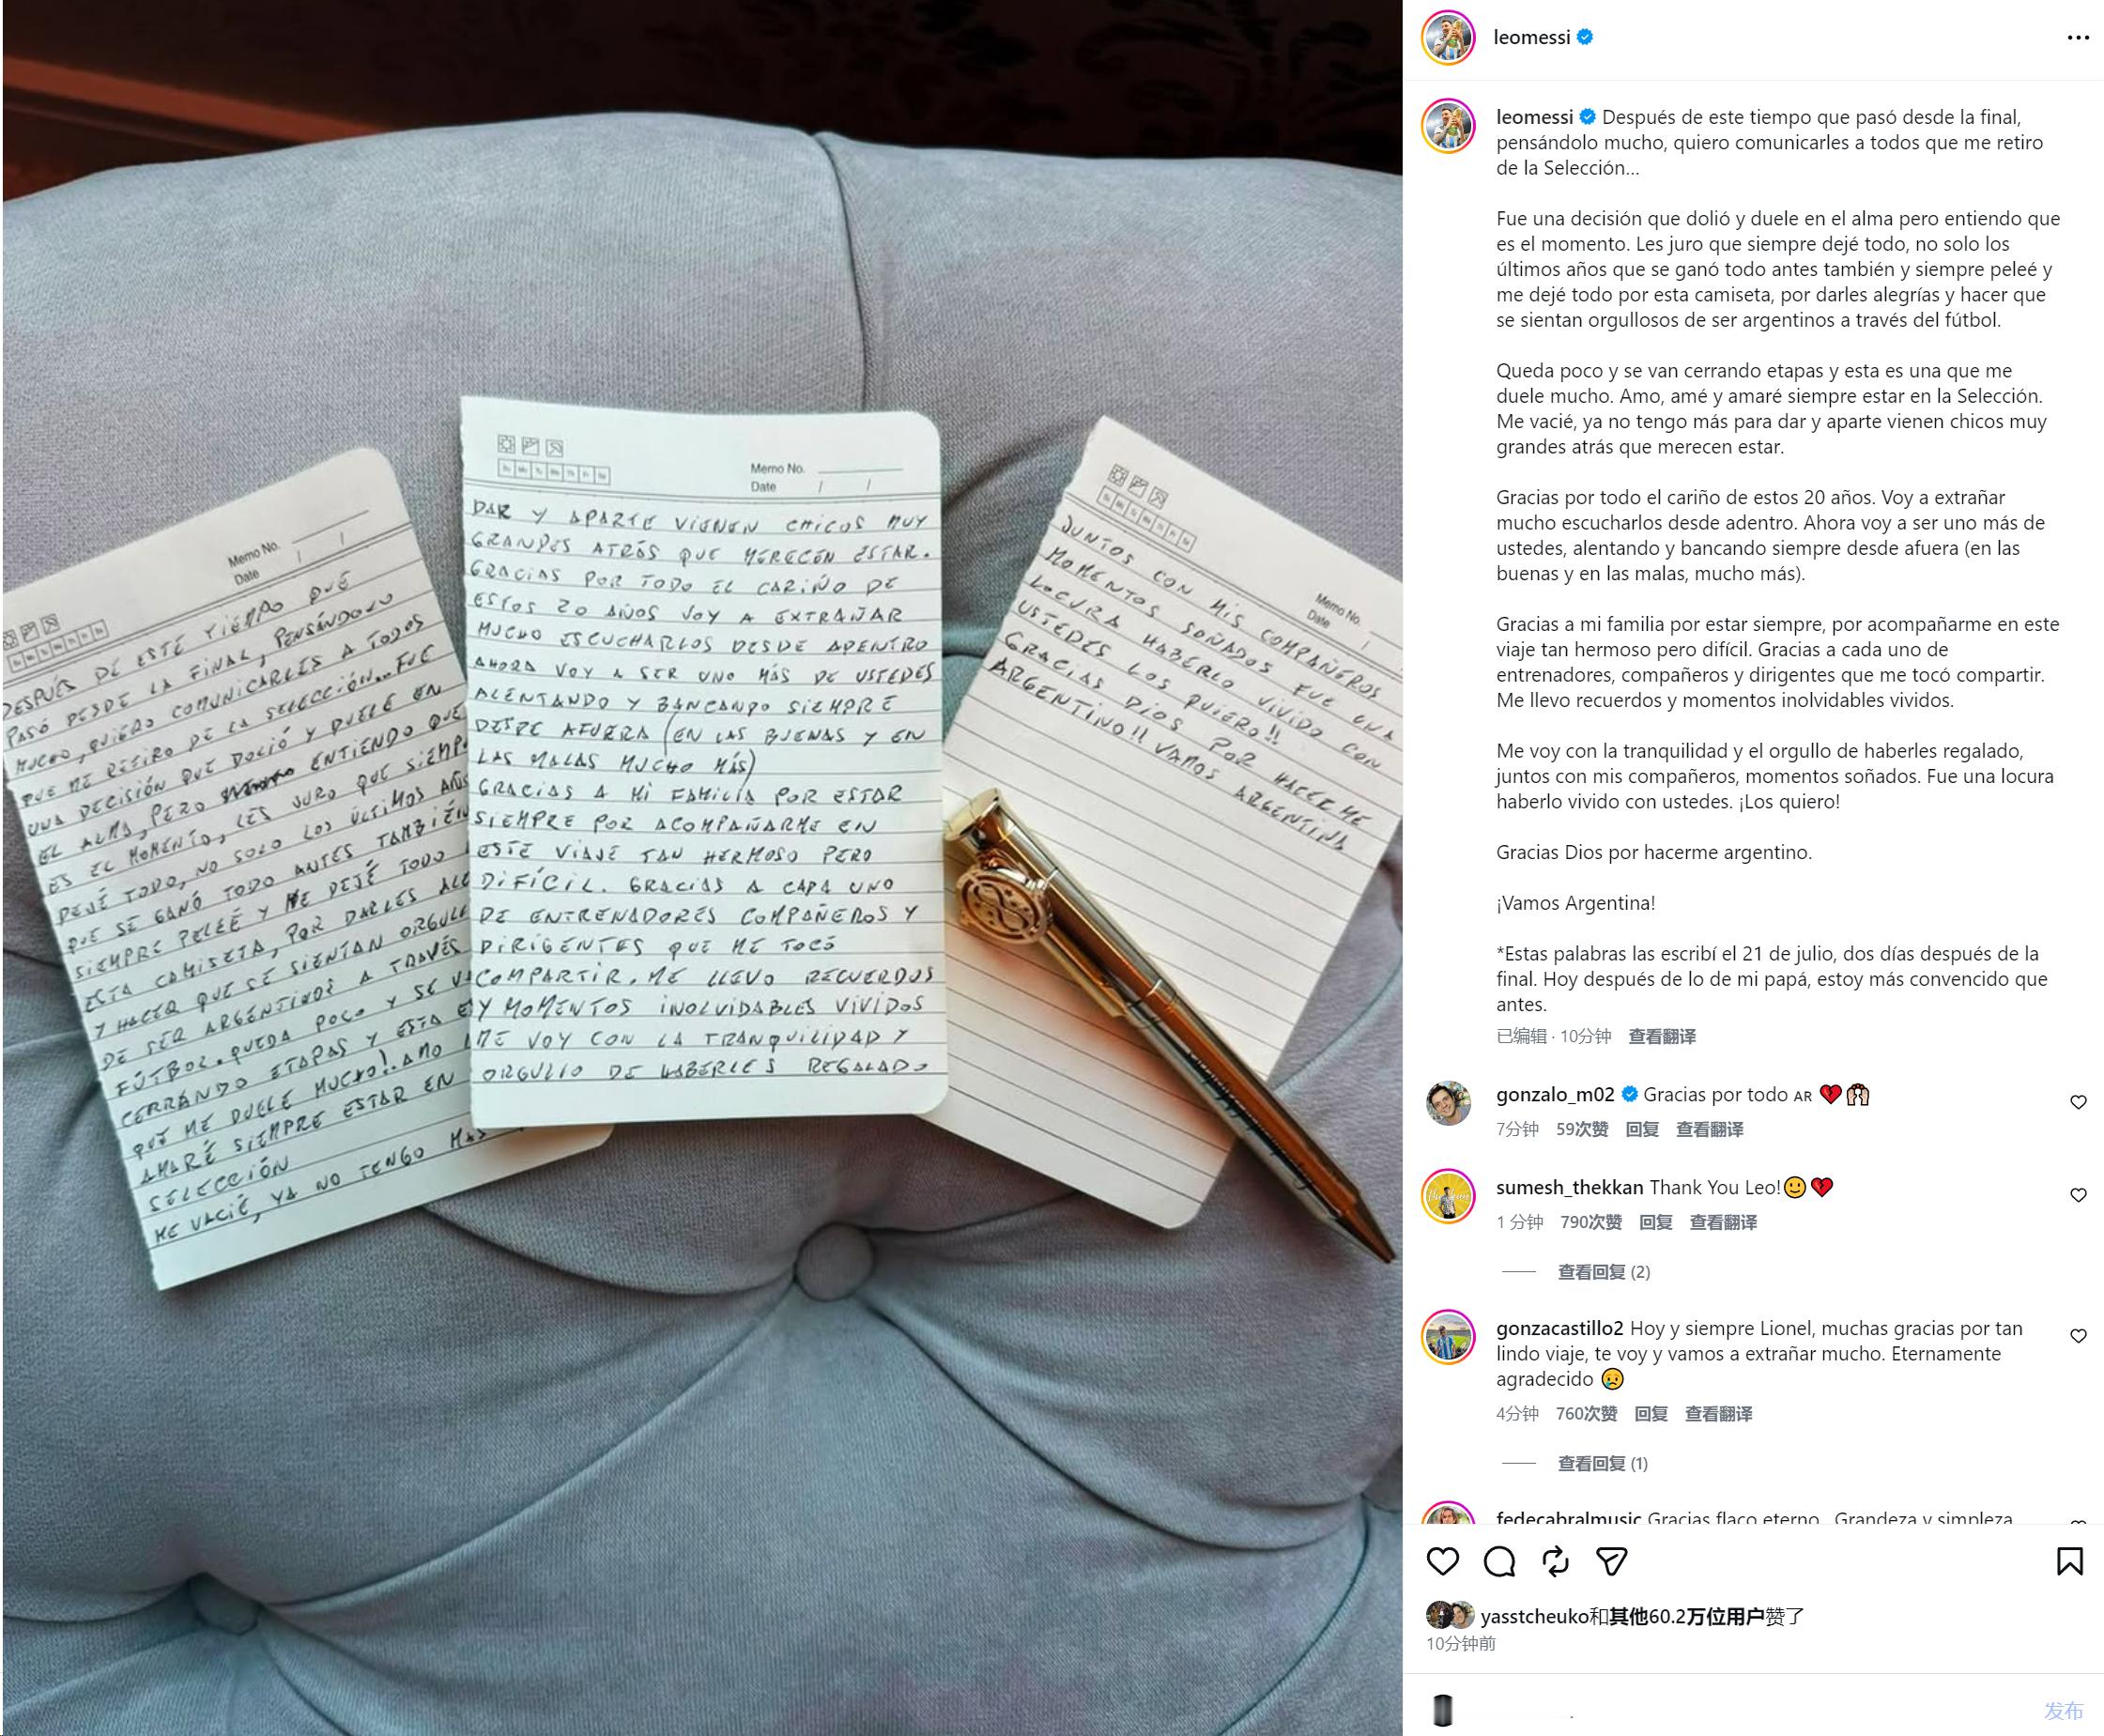 Memo No.
Date / /
DESPUÉS DE ESTE TIEMPO QUE
PASÓ DESDE LA FINAL, PENSÁNDOLO
MUCHO, QUIERO COMUNICARLES A TODOS
QUE ME RETIRO DE LA SELECCIÓN... FUE
UNA DECISIÓN QUE DOLIÓ Y DUELE EN
EL ALMA, PERO ENTIENDO QUE
ES EL MOMENTO, LES JURO QUE SIEMP
DEJÉ TODO, NO SOLO LOS ÚLTIMOS AÑOS
QUE SE GANÓ TODO ANTES TAMBIÉN
SIEMPRE PELEÉ Y ME DEJÉ TODO
ESTA CAMISETA, POR DARLES ALE
Y HACER QUE SE SIENTAN ORGULL
DE SER ARGENTINOS A TRAVÉS
FÚTBOL. QUEDA POCO Y SE VA
CERRANDO ETAPAS Y ESTA E
QUE ME DUELE MUCHO!. AMO
AMARÉ SIEMPRE ESTAR EN
SELECCIÓN
ME VACIÉ, YA NO TENGO MAS
Memo No.
Date / /
DAR Y APARTE VIENEN CHICOS MUY
GRANDES ATRÁS QUE MERECEN ESTAR.
GRACIAS POR TODO EL CARIÑO DE
ESTOS 20 AÑOS VOY A EXTRAÑAR
MUCHO ESCUCHARLOS DESDE ADENTRO
AHORA VOY A SER UNO MÁS DE USTEDES
ALENTANDO Y BANCANDO SIEMPRE
DESDE AFUERA (EN LAS BUENAS Y EN
LAS MALAS MUCHO MÁS)
GRACIAS A MI FAMILIA POR ESTAR
SIEMPRE POR ACOMPAÑARME EN
ESTE VIAJE TAN HERMOSO PERO
DIFÍCIL. GRACIAS A CADA UNO
DE ENTRENADORES COMPAÑEROS Y
DIRIGENTES QUE ME TOCÓ
COMPARTIR. ME LLEVO RECUERDOS
Y MOMENTOS INOLVIDABLES VIVIDOS
ME VOY CON LA TRANQUILIDAD Y
ORGULLO DE HABERLES REGALADO
Memo No.
Date /
JUNTOS CON MIS COMPAÑEROS
MOMENTOS SOÑADOS FUE UNA
LOCURA HABERLO VIVIDO CON
USTEDES LOS QUIERO!!
GRACIAS DIOS POR HACERME
ARGENTINO!! VAMOS ARGENTINA
leomessi
leomessi Después de este tiempo que pasó desde la final,
pensándolo mucho, quiero comunicarles a todos que me retiro
de la Selección...
Fue una decisión que dolió y duele en el alma pero entiendo que
es el momento. Les juro que siempre dejé todo, no solo los
últimos años que se ganó todo antes también y siempre peleé y
me dejé todo por esta camiseta, por darles alegrías y hacer que
se sientan orgullosos de ser argentinos a través del fútbol.
Queda poco y se van cerrando etapas y esta es una que me
duele mucho. Amo, amé y amaré siempre estar en la Selección.
Me vacié, ya no tengo más para dar y aparte vienen chicos muy
grandes atrás que merecen estar.
Gracias por todo el cariño de estos 20 años. Voy a extrañar
mucho escucharlos desde adentro. Ahora voy a ser uno más de
ustedes, alentando y bancando siempre desde afuera (en las
buenas y en las malas, mucho más).
Gracias a mi familia por estar siempre, por acompañarme en este
viaje tan hermoso pero difícil. Gracias a cada uno de
entrenadores, compañeros y dirigentes que me tocó compartir.
Me llevo recuerdos y momentos inolvidables vividos.
Me voy con la tranquilidad y el orgullo de haberles regalado,
juntos con mis compañeros, momentos soñados. Fue una locura
haberlo vivido con ustedes. ¡Los quiero!
Gracias Dios por hacerme argentino.
¡Vamos Argentina!
*Estas palabras las escribí el 21 de julio, dos días después de la
final. Hoy después de lo de mi papá, estoy más convencido que
antes.
已编辑 · 10分钟 查看翻译
gonzalo_m02 Gracias por todo AR 💔🙌
7分钟 59次赞 回复 查看翻译
sumesh_thekkan Thank You Leo!🙂💔
1 分钟 790次赞 回复 查看翻译
查看回复 (2)
gonzacastillo2 Hoy y siempre Lionel, muchas gracias por tan
lindo viaje, te voy y vamos a extrañar mucho. Eternamente
agradecido 😢
4分钟 760次赞 回复 查看翻译
查看回复 (1)
fedecabralmusic Gracias flaco eterno.. Grandeza y simpleza
yasstcheuko和其他60.2万位用户赞了
10分钟前
发布